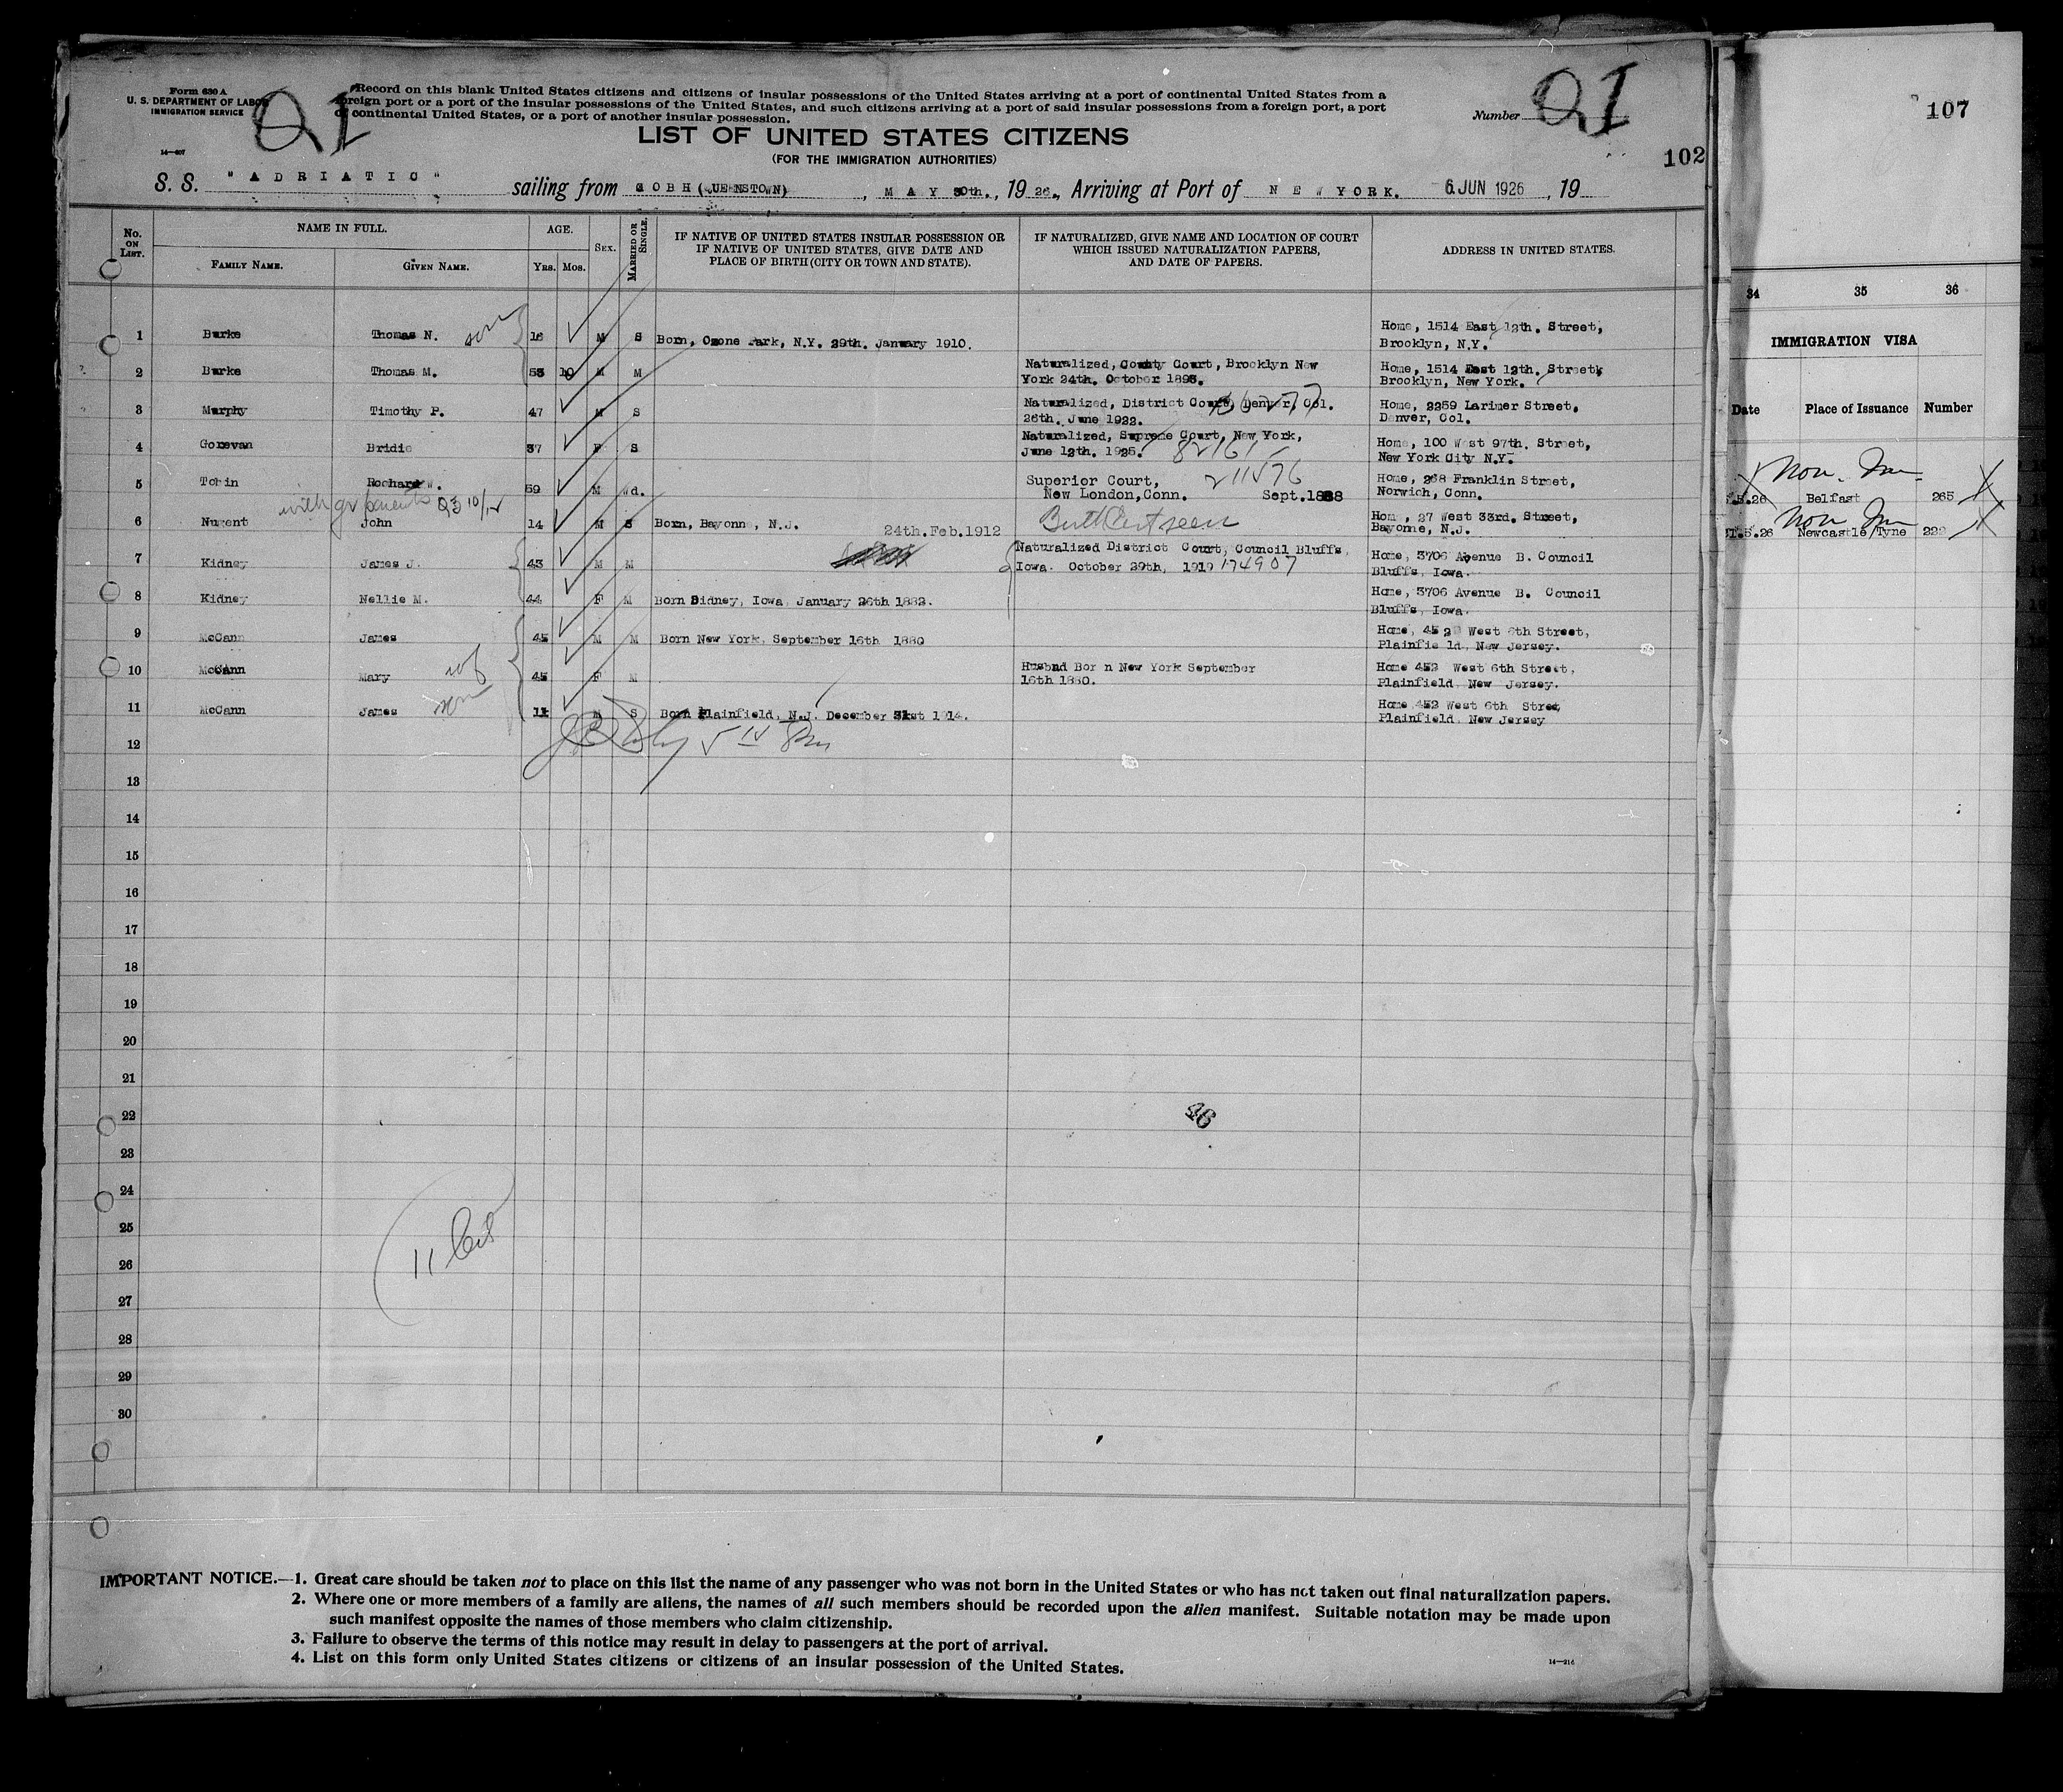 Form 630 A
U. S. DEPARTMENT OF LABOR
IMMIGRATION SERVICE
14—407
QI
Record on this blank United States citizens and citizens of insular possessions of the United States arriving at a port of continental United States from a
foreign port or a port of the insular possessions of the United States, and such citizens arriving at a port of said insular possessions from a foreign port, a port
of continental United States, or a port of another insular possession.
LIST OF UNITED STATES CITIZENS
(FOR THE IMMIGRATION AUTHORITIES)
Number QI
102
S. S. "ADRIATIC" sailing from COBH (QUEENSTOWN), MAY 30th., 1926., Arriving at Port of NEW YORK. 6 JUN 1926, 19
No. ON LIST.
NAME IN FULL.
FAMILY NAME.
GIVEN NAME.
AGE.
YRS. MOS.
SEX.
MARRIED OR SINGLE.
IF NATIVE OF UNITED STATES INSULAR POSSESSION OR
IF NATIVE OF UNITED STATES, GIVE DATE AND
PLACE OF BIRTH (CITY OR TOWN AND STATE).
IF NATURALIZED, GIVE NAME AND LOCATION OF COURT
WHICH ISSUED NATURALIZATION PAPERS,
AND DATE OF PAPERS.
ADDRESS IN UNITED STATES.
1 Burke Thomas N. son 16 M S Born, Ozone Park, N.Y. 29th. January 1910. Home, 1514 East 12th. Street,
Brooklyn, N.Y.
2 Burke Thomas M. 53 10 M M Naturalized, County Court, Brooklyn New
York 24th. October 1893. Home, 1514 East 12th. Street,
Brooklyn, New York.
3 Murphy Timothy P. 47 M S Naturalized, District Court, Denver, Col.
26th. June 1922. Home, 2259 Larimer Street,
Denver, Col.
4 Gorevan Bridie 37 F S Naturalized, Supreme Court, New York,
June 12th. 1925. 82161 Home, 100 West 97th. Street,
New York City N.Y.
5 Tobin Rochard W. 59 M Wd. Superior Court, 211576
New London, Conn. Sept. 1888 Home, 268 Franklin Street,
Norwich, Conn.
with gr parents Q3 10/12
6 Nugent John 14 M S Born, Bayonne, N.J. 24th. Feb. 1912 Birth Cert seen Home, 27 West 33rd. Street,
Bayonne, N.J.
7 Kidney James J. 43 M M Naturalized District Court, Council Bluffs,
Iowa. October 29th, 1919 174907 Home, 3706 Avenue B. Council
Bluffs, Iowa.
8 Kidney Nellie M. 44 F M Born Sidney, Iowa, January 26th 1882. Home, 3706 Avenue B. Council
Bluffs, Iowa.
9 McCann James 45 M M Born New York, September 16th 1880 Home, 452 West 6th Street,
Plainfie ld, New Jersey.
10 McCann Mary wf 45 F M Husbnd Bor n New York September
16th 1880. Home 452 West 6th Street,
Plainfield, New Jersey.
11 McCann James son 11 M S Born Plainfield, N.J. December 31st 1914. Home 452 West 6th Stree,
Plainfield, New Jersey
12
13
14
15
16
17
18
19
20
21
22
46
23
24
25
11 Cit
26
27
28
29
30
IMPORTANT NOTICE.—1. Great care should be taken not to place on this list the name of any passenger who was not born in the United States or who has not taken out final naturalization papers.
2. Where one or more members of a family are aliens, the names of all such members should be recorded upon the alien manifest. Suitable notation may be made upon
such manifest opposite the names of those members who claim citizenship.
3. Failure to observe the terms of this notice may result in delay to passengers at the port of arrival.
4. List on this form only United States citizens or citizens of an insular possession of the United States.
14—216
107
34 35 36
IMMIGRATION VISA
Date Place of Issuance Number
Non. Im
.5.26 Belfast 265
Non Im
21.5.26 Newcastle/Tyne 222